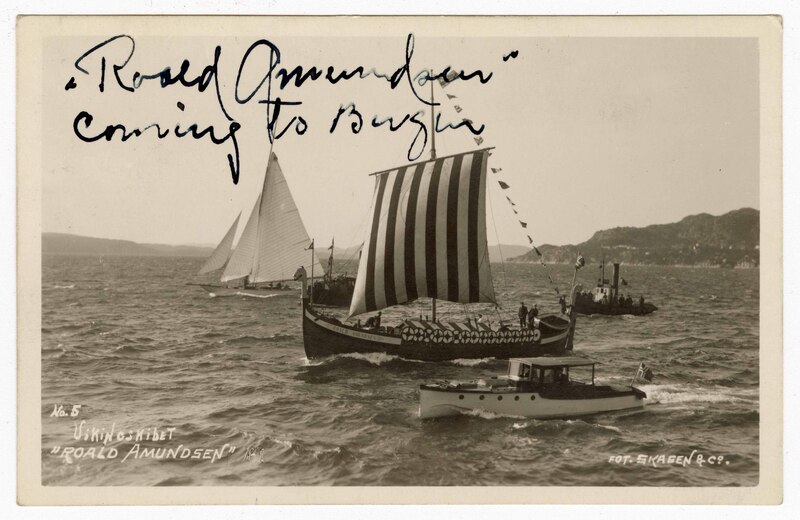 „Roald Amundsen"
coming to Bergen
No. 5
VIKINGSKIBET
"ROALD AMUNDSEN"
FOT. SKAGEN & Co.